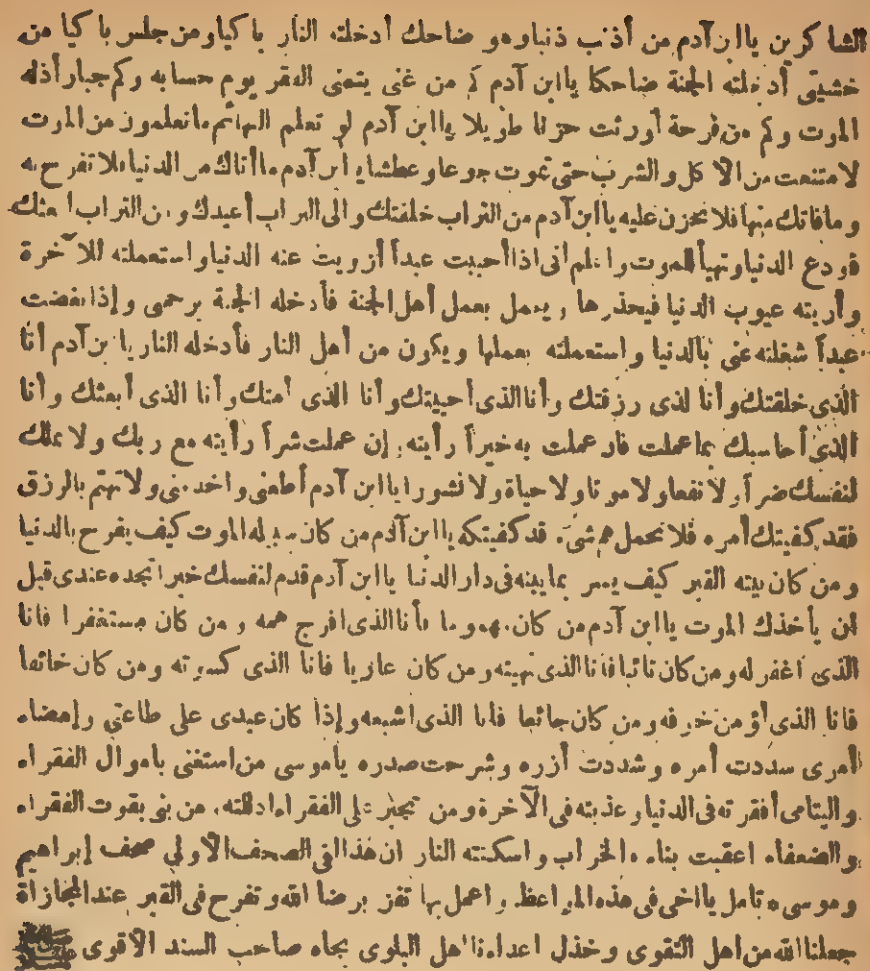 الشاكرين ياابن آدم من أذنب ذنبا وهو ضاحك أدخلته النار باكيا ومن جلس باكيا من
خشيتى أدخلته الجنة ضاحكا ياابن آدم كم من غنى يتمنى الفقر يوم حسابه وكم جبار أذله
الموت وكم من فرحة أورثت حزنا طويلا ياابن آدم لو تعلم البهائم ماتعلمون من الموت
لامتنعت من الأكل والشرب حتى تموت جوعا وعطشا ياابن آدم ماأتاك من الدنيا فلا تفرح به
وما فاتك منها فلا تحزن عليه ياابن آدم من التراب خلقتك والى التراب أعيدك ومن التراب ابعثك
فودع الدنيا وتهيأ للموت واعلم أنى اذا أحببت عبداً أزويت عنه الدنيا واستعملته للآخرة
وأريته عيوب الدنيا فيحذرها ويعمل بعمل أهل الجنة فأدخله الجنة برحمتى وإذا بغضت
عبداً شغلته عنى بالدنيا واستعملته بعملها ويكون من أهل النار فأدخله النار ياابن آدم أنا
الذى خلقتك وأنا لذى رزقتك وأنا الذى أحييتك وأنا الذى أمتك وأنا الذى أبعثك وأنا
الذى أحاسبك بما عملت فان عملت به خيراً رأيته وإن عملت شراً رأيته مع ربك ولا تملك
لنفسك ضراً ولا نفعا ولا موتا ولا حياة ولا نشورا ياابن آدم أطعنى واخدمنى ولا تهتم بالرزق
فقد كفيتك أمره فلا تحمل هم شىء قد كفيتكه ياابن آدم من كان سبيله الموت كيف يفرح بالدنيا
ومن كان بيته القبر كيف يسر بما بينه فى دار الدنيا ياابن آدم قدم لنفسك خيرا تجده عندى قبل
ان يأخذك الموت ياابن آدم من كان مهموما فأنا الذى افرج همه ومن كان مستغفرا فانا
الذى اغفر له ومن كان تائبا فانا الذى نهيته ومن كان عاريا فانا الذى كسوته ومن كان خائفا
فانا الذى أؤمن خوفه ومن كان جائعا فانا الذى اشبعه وإذا كان عبدى على طاعتى وإمضاء
أمرى سددت أمره وشددت أزره وشرحت صدره ياموسى من استغنى باموال الفقراء
واليتامى أفقرته فى الدنيا وعذبته فى الآخرة ومن تجبر على الفقراء اذللته ومن بنى بقوت الفقراء
والضعفاء اعقبت بناءه الخراب واسكنته النار ان هذا لفى الصحف الأولى صحف إبراهيم
وموسى ه تامل يااخى فى هذه المواعظ واعمل بها تفز برضا الله وتفرح فى القبر عند المجازاة
جعلنا الله من اهل التقوى وخذل اعداءنا اهل البلوى بجاه صاحب السند الأقوى